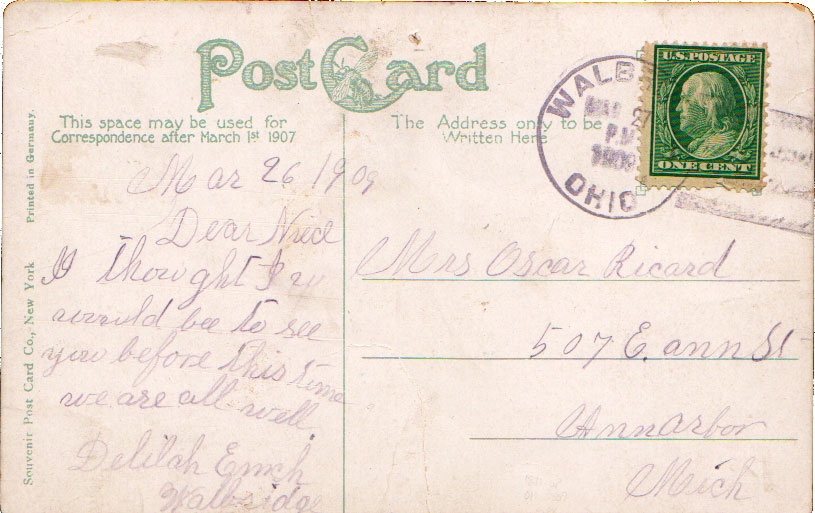 Post Card
This space may be used for
Correspondence after March 1st 1907
The Address only to be
Written Here
WALB
MAR 27
P.M
1909
OHIO
U.S. POSTAGE
ONE CENT
Printed in Germany.
Souvenir Post Card Co., New York
Mar 26 1909
Dear Niece
I thought I
would bee to see
you before this time
we are all well
Delilah Emch
Walbridge
Mrs Oscar Ricard
507 E. ann St
Annarbor
Mich